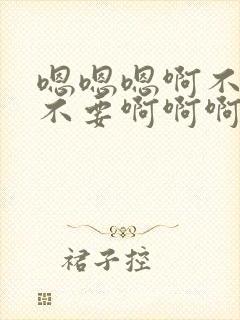 嗯嗯嗯啊不
不要啊啊啊
裙子控